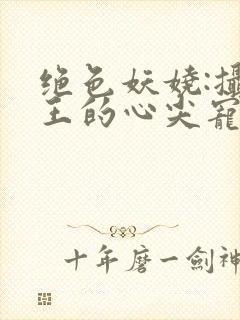 绝色妖娆:攝
王的心尖寵
十年磨一劍神